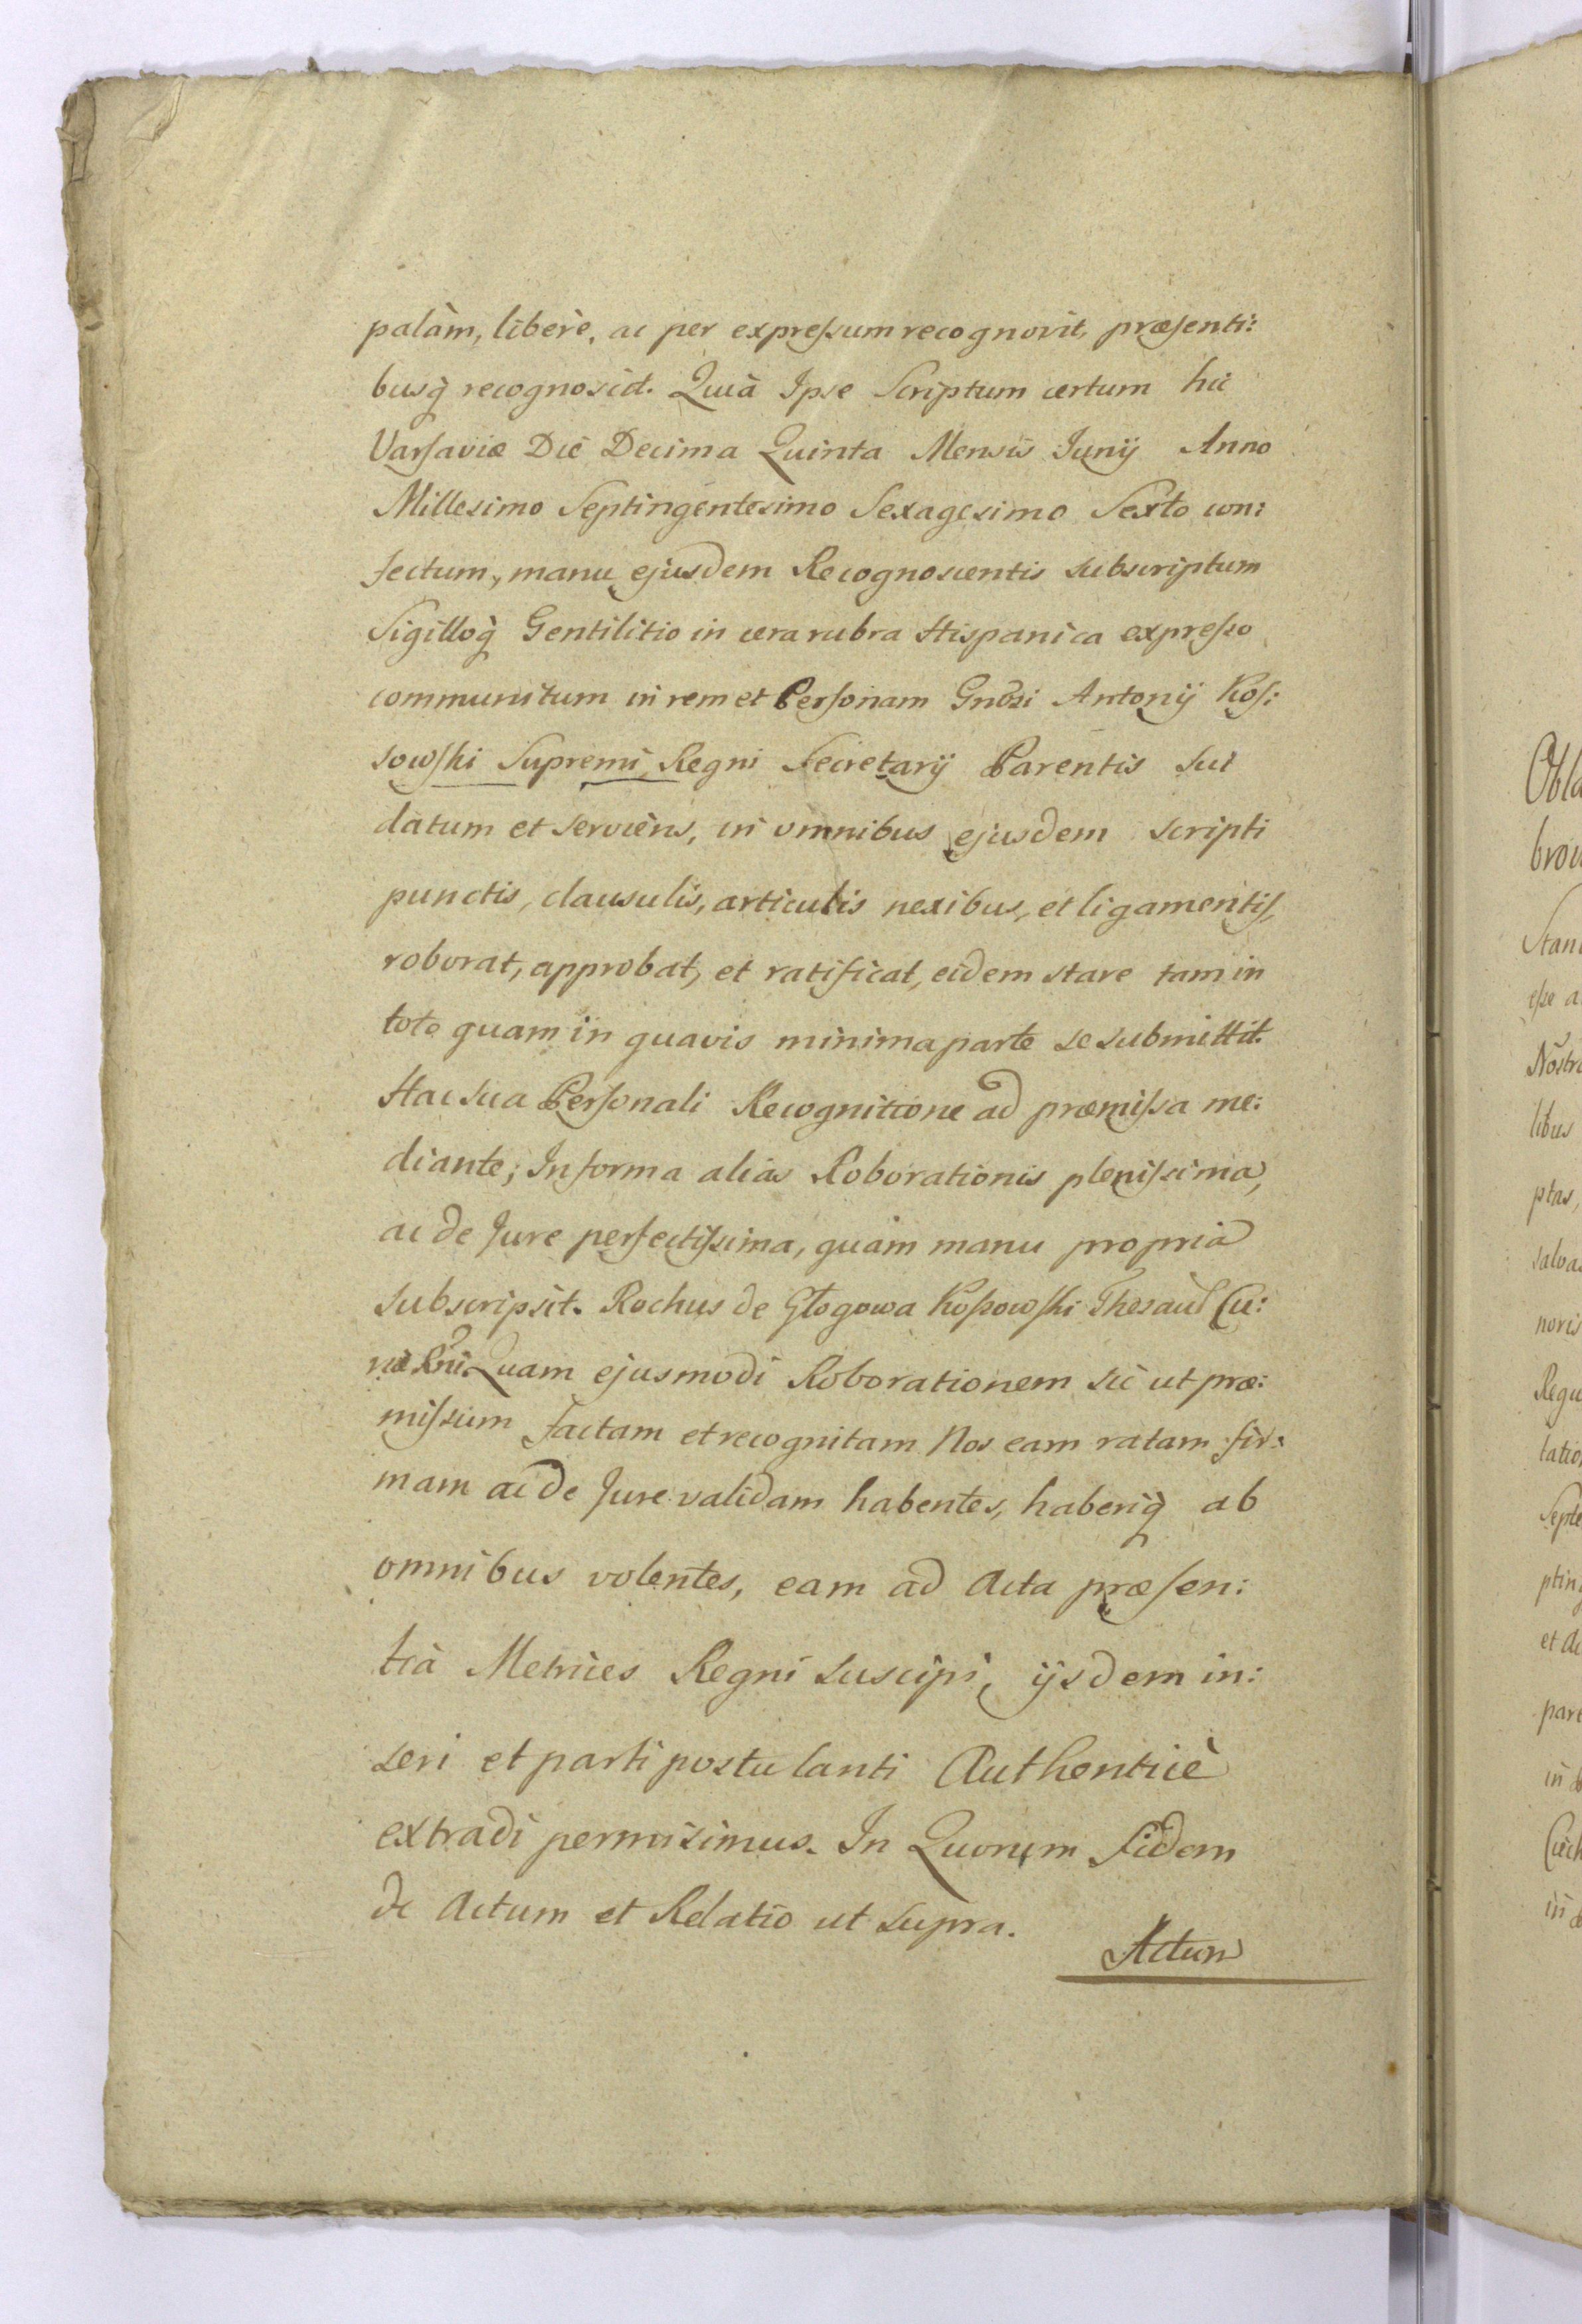 palàm, liberè, ac per expreſsum recognovit, præſenti:
busq̀ recognoscit. Quià Ipse Scriptum certum hic
Varſaviæ Die Decima Quinta Mensis Junij Anno
Millesimo Septingentesimo Sexagesimo Sexto con:
fectum, manu ejusdem Recognoscentis subscriptum
Sigilloq̀ Gentilitio in cera rubra Hispanica expreſso
communitum in rem et Perſonam Gnõsi Antonij Koſ:
sowſki Supremi Regni Secretarij Parentis sui
datum et serviens, in omnibus ejusdem scripti
punctis, clausulis, articulis nexibus, et ligamentiſ,
roborat, approbat, et ratificat, eidem stare tam in
toto quam in quavis minima parte se submittit.
Hac sua Perſonali Recognitione ad præmiſsa me:
diante; In forma aliàs Roborationis pleniſsima,
ac de Jure perfectiſsima, quam manu propriâ
subscripsit. Rochus de Głogowa Koſsowſki Thesaur Cu:
riæ Rni. Quam ejusmodi Roborationem sic ut præ:
miſsum factam et recognitam Nos eam ratam fir:
mam ac de Jure validam habentes, haberiq̀ ab
omnibus volentes, eam ad Acta præſen:
tià Metrices Regni suscipi, ijsdem in:
seri et parti postulanti Authenticè
extradi permisimus. In Quorum Fidem
dc Actum et Relatio ut supra.
Actum
Obla
brow
Stani
eſse a
Nostr
libus
ptas,
salva
noris
Regu
tatio
Septe
pting
et Ac
part
in d
Cuch
in d